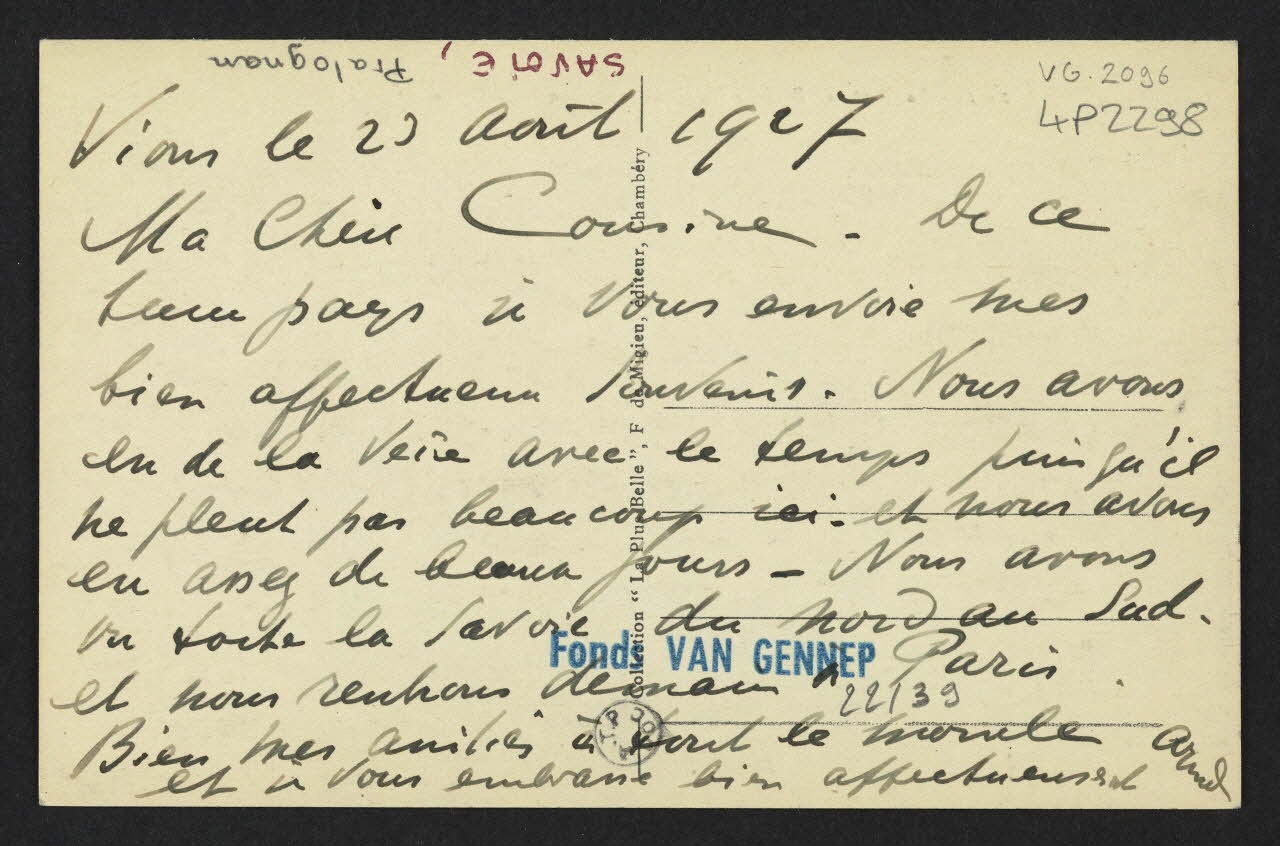 SAVOIE, Pralognan
VG. 2096
4P2298
Vions le 23 août 1927
Ma Chère Cousine - De ce
beau pays je vous envoie mes
bien affectueux souvenirs. Nous avons
eu de la veine avec le temps puisqu'il
ne pleut pas beaucoup ici. et nous avons
eu assez de beaux jours - Nous avons
vu toute la Savoie du nord au Sud.
et nous rentrons demain à Paris.
Bien mes amitiés à tout le monde
et je vous embrasse bien affectueusement
Fonds VAN GENNEP
22/39
Collection "La Plus Belle", F de Migieu, éditeur, Chambéry